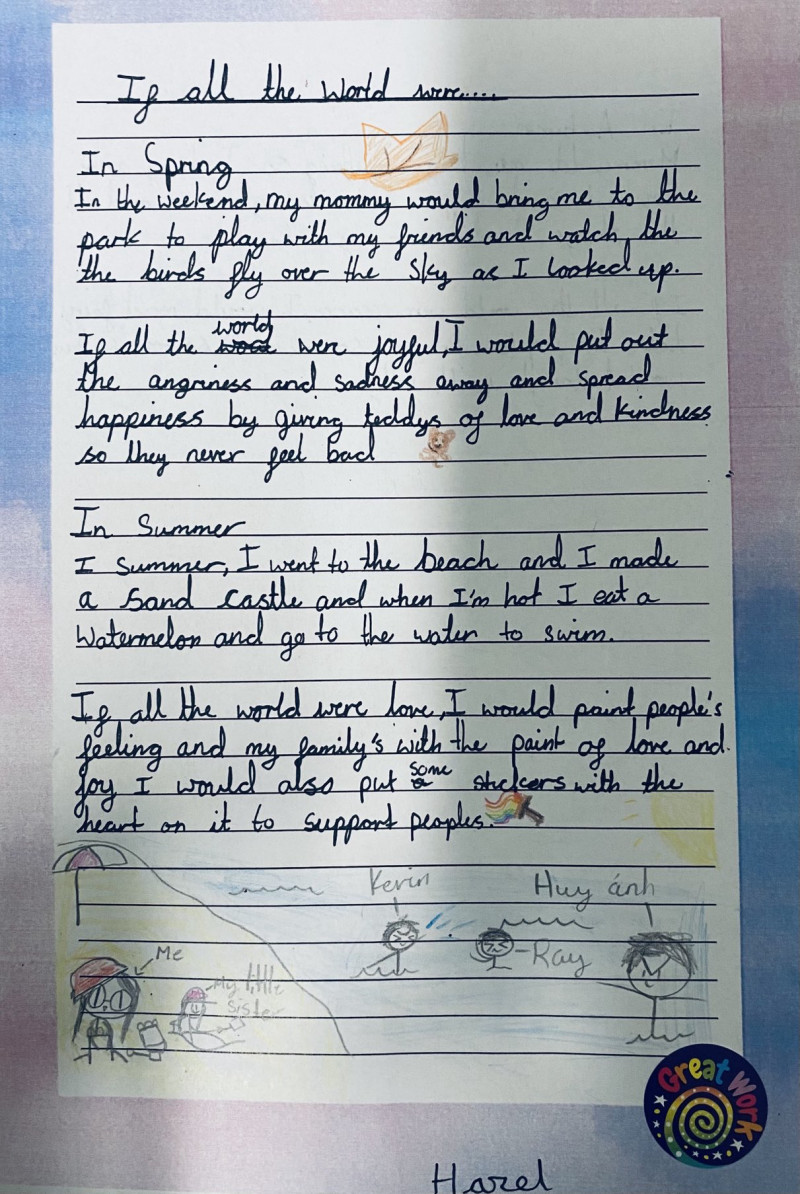 If all the World were.....
In Spring
In the weekend, my mommy would bring me to the
park to play with my friends and watch the
the birds fly over the Sky as I looked up.
If all the world were joyful, I would put out
the angriness and sadness away and spread
happiness by giving teddys of love and kindness
so they never feel bad
In Summer
I Summer, I went to the beach and I made
a Sand Castle and when I'm hot I eat a
Watermelon and go to the water to swim.
If all the world were love, I would paint people's
feeling and my family's with the paint of love and
joy I would also put some stickers with the
heart on it to support peoples.
Kevin
Huy ánh
Ray
Me
My little
sister
Great Work
Hazel